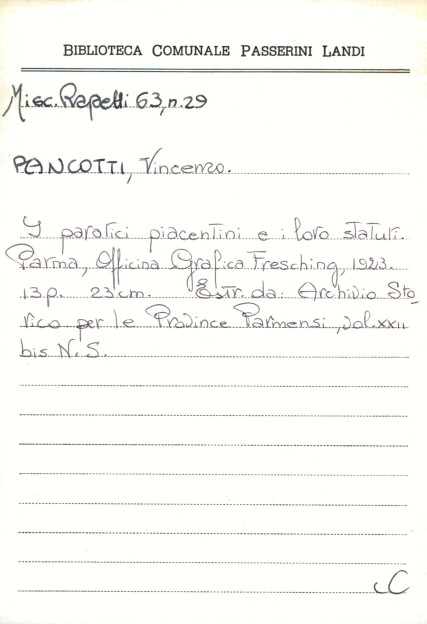 BIBLIOTECA COMUNALE PASSERINI LANDI
Misc. Rapetti 63, n. 29
PANCOTTI, Vincenzo.
I paratici piacentini e i loro statuti.
Parma, Officina Grafica Fresching, 1923.
13 p. 23 cm. Estr. da: Archivio Sto-
rico per le Province Parmensi, vol. XXII
bis N.S.
C